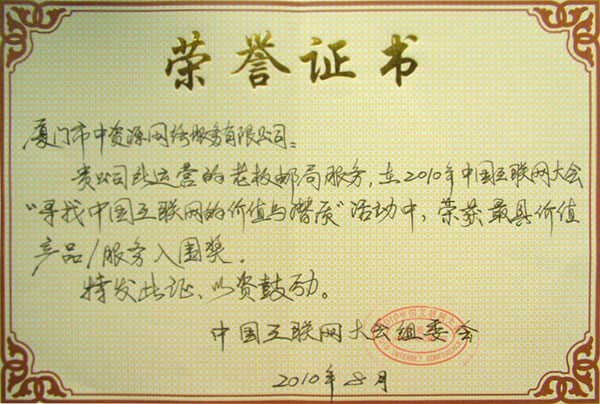 荣誉证书
厦门市中资源网络服务有限公司:
贵公司所运营的老板邮局服务,在2010年中国互联网大会
“寻找中国互联网的价值与潜质”活动中,荣获最具价值
产品/服务入围奖。
特发此证、以资鼓励。
中国互联网大会组委会
2010年8月
INTERNET CONFERENCE